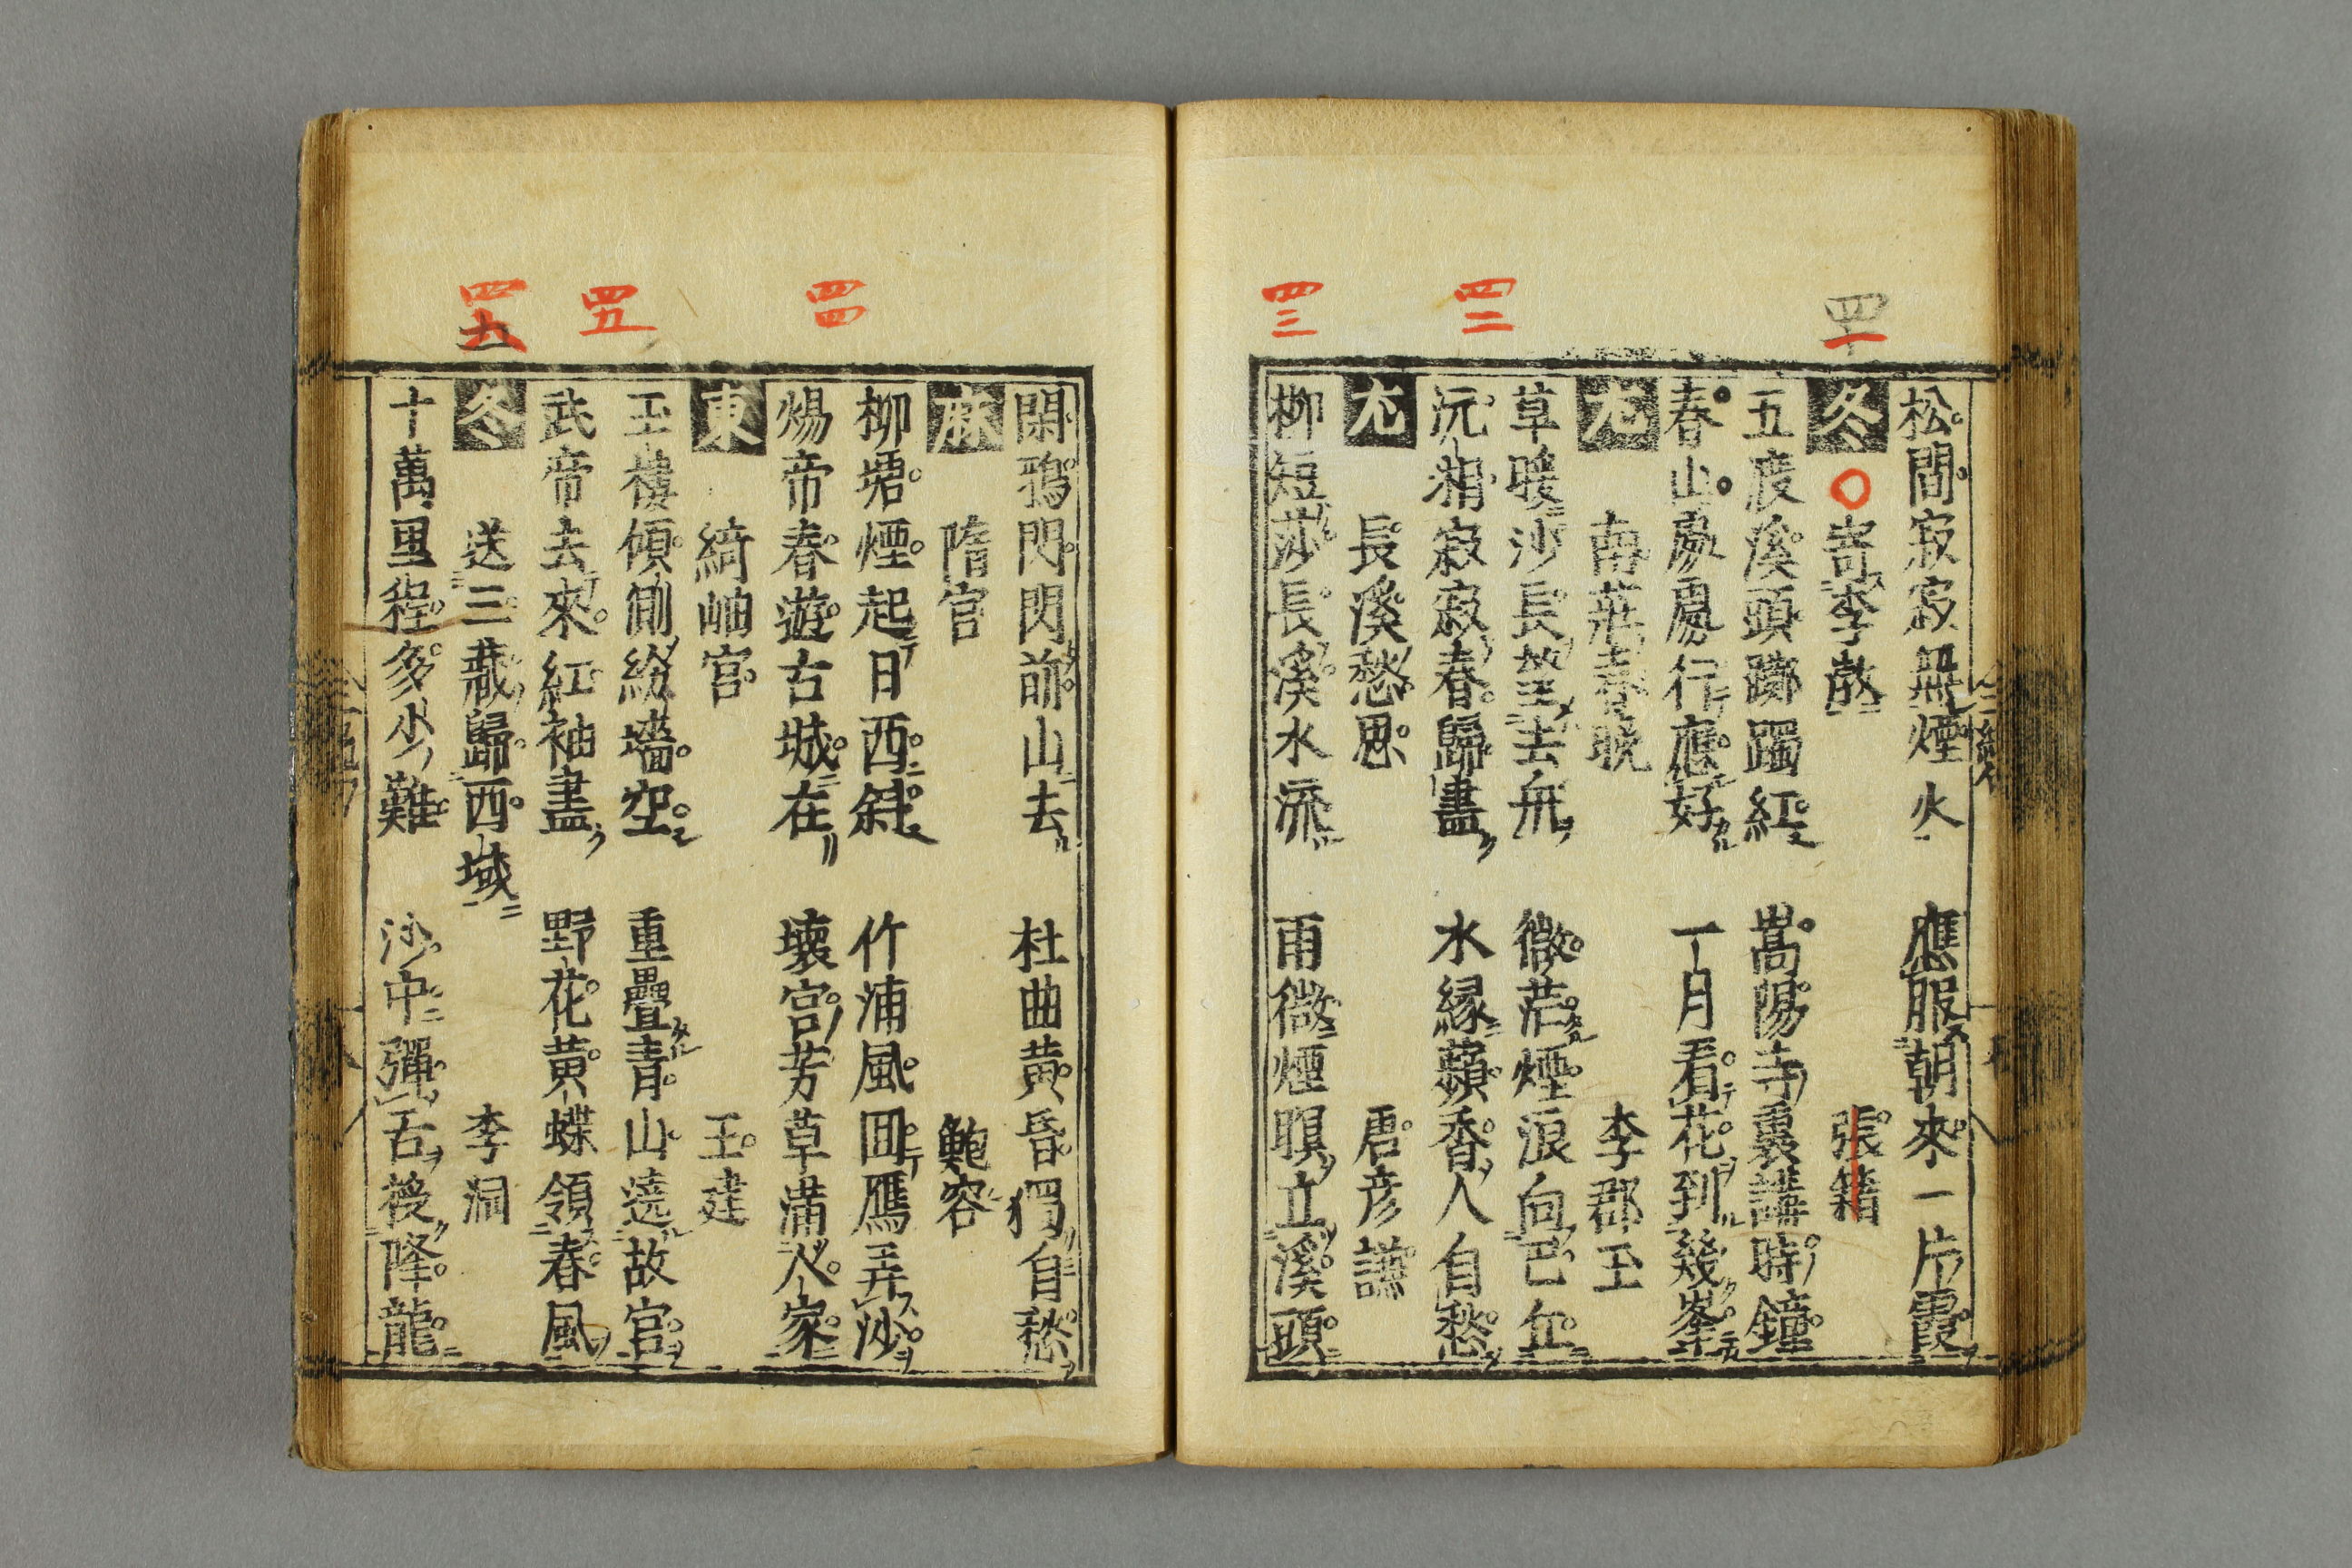 四十一
四二
四三
松間寂寂無煙火　應服朝來一片霞
冬　寄李㪚　張籍
五度溪頭躑躅紅　嵩陽寺裏講時鐘
春山處處行應好　一月看花到幾峯
尤　南莊春晚　李郡玉
草暖沙長望去舟　微茫煙浪向巴丘
沅湘寂寂春歸盡　水緑蘋香人自愁
尤　長溪愁思　唐彦謙
柳短莎長溪水流　雨微煙暝立溪頭
四四
四五
四六
閑鴉閃閃前山去　杜曲黄昏獨自愁
麻　隋宫　鮑容
柳塘煙起日西斜　竹浦風囬鴈弄沙
煬帝春遊古城在　壞宫芳草滿人家
東　綺岫宫　王建
玉樓傾側紛墻空　重疊青山遶故宫
武帝去來紅袖盡　野花黄蝶領春風
冬　送三藏歸西域　李洞
十萬里程多少難　沙中彈舌授降龍